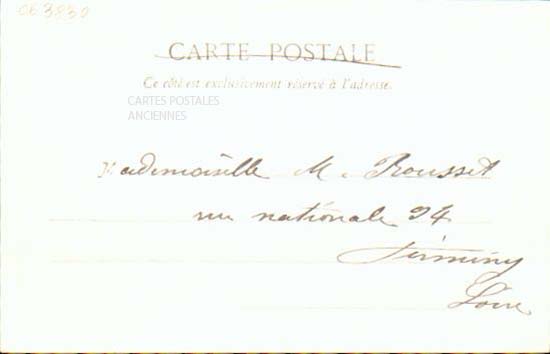 CARTE POSTALE
Ce côté est exclusivement réservé à l'adresse.
CARTES POSTALES
ANCIENNES
Mademoiselle M. Rousset
rue nationale 94
Firminy
Loire